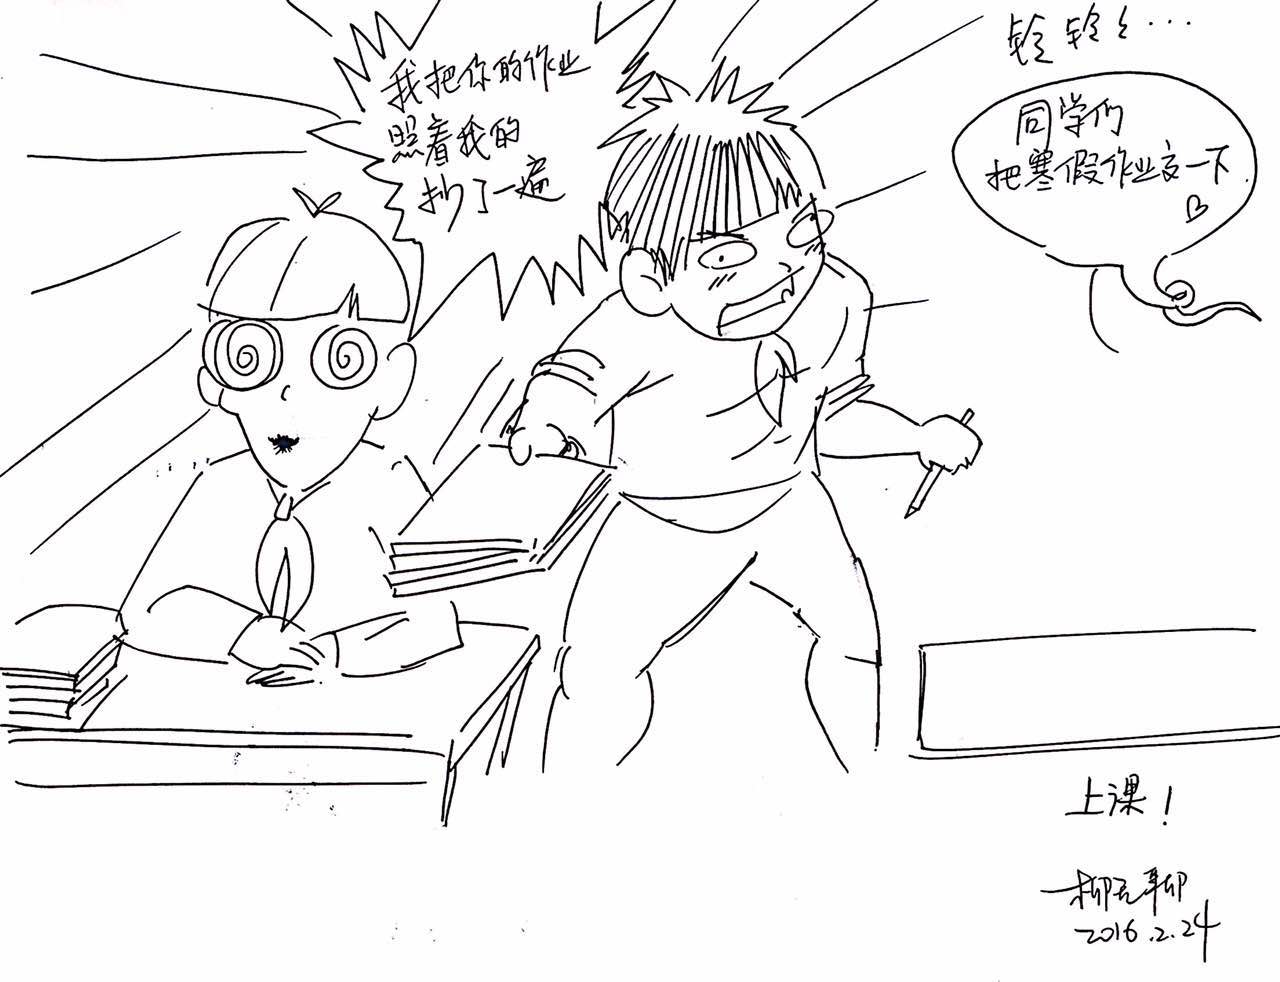 我把你的作业
照着我的
抄了一遍
铃铃々…
同学们
把寒假作业交一下
上课！
柳无聊
2016.2.24